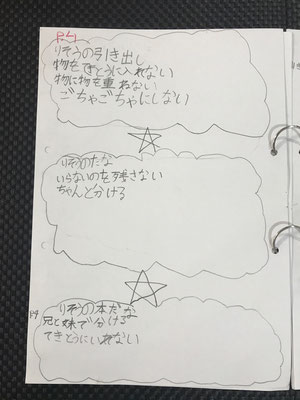 りそうの引き出し
物をてきとうに入れない
物に物を重ねない
ごちゃごちゃにしない
りそうのたな
いらないのを残さない
ちゃんと分ける
りそうの本だな
兄と妹で分ける
てきとうにいれない